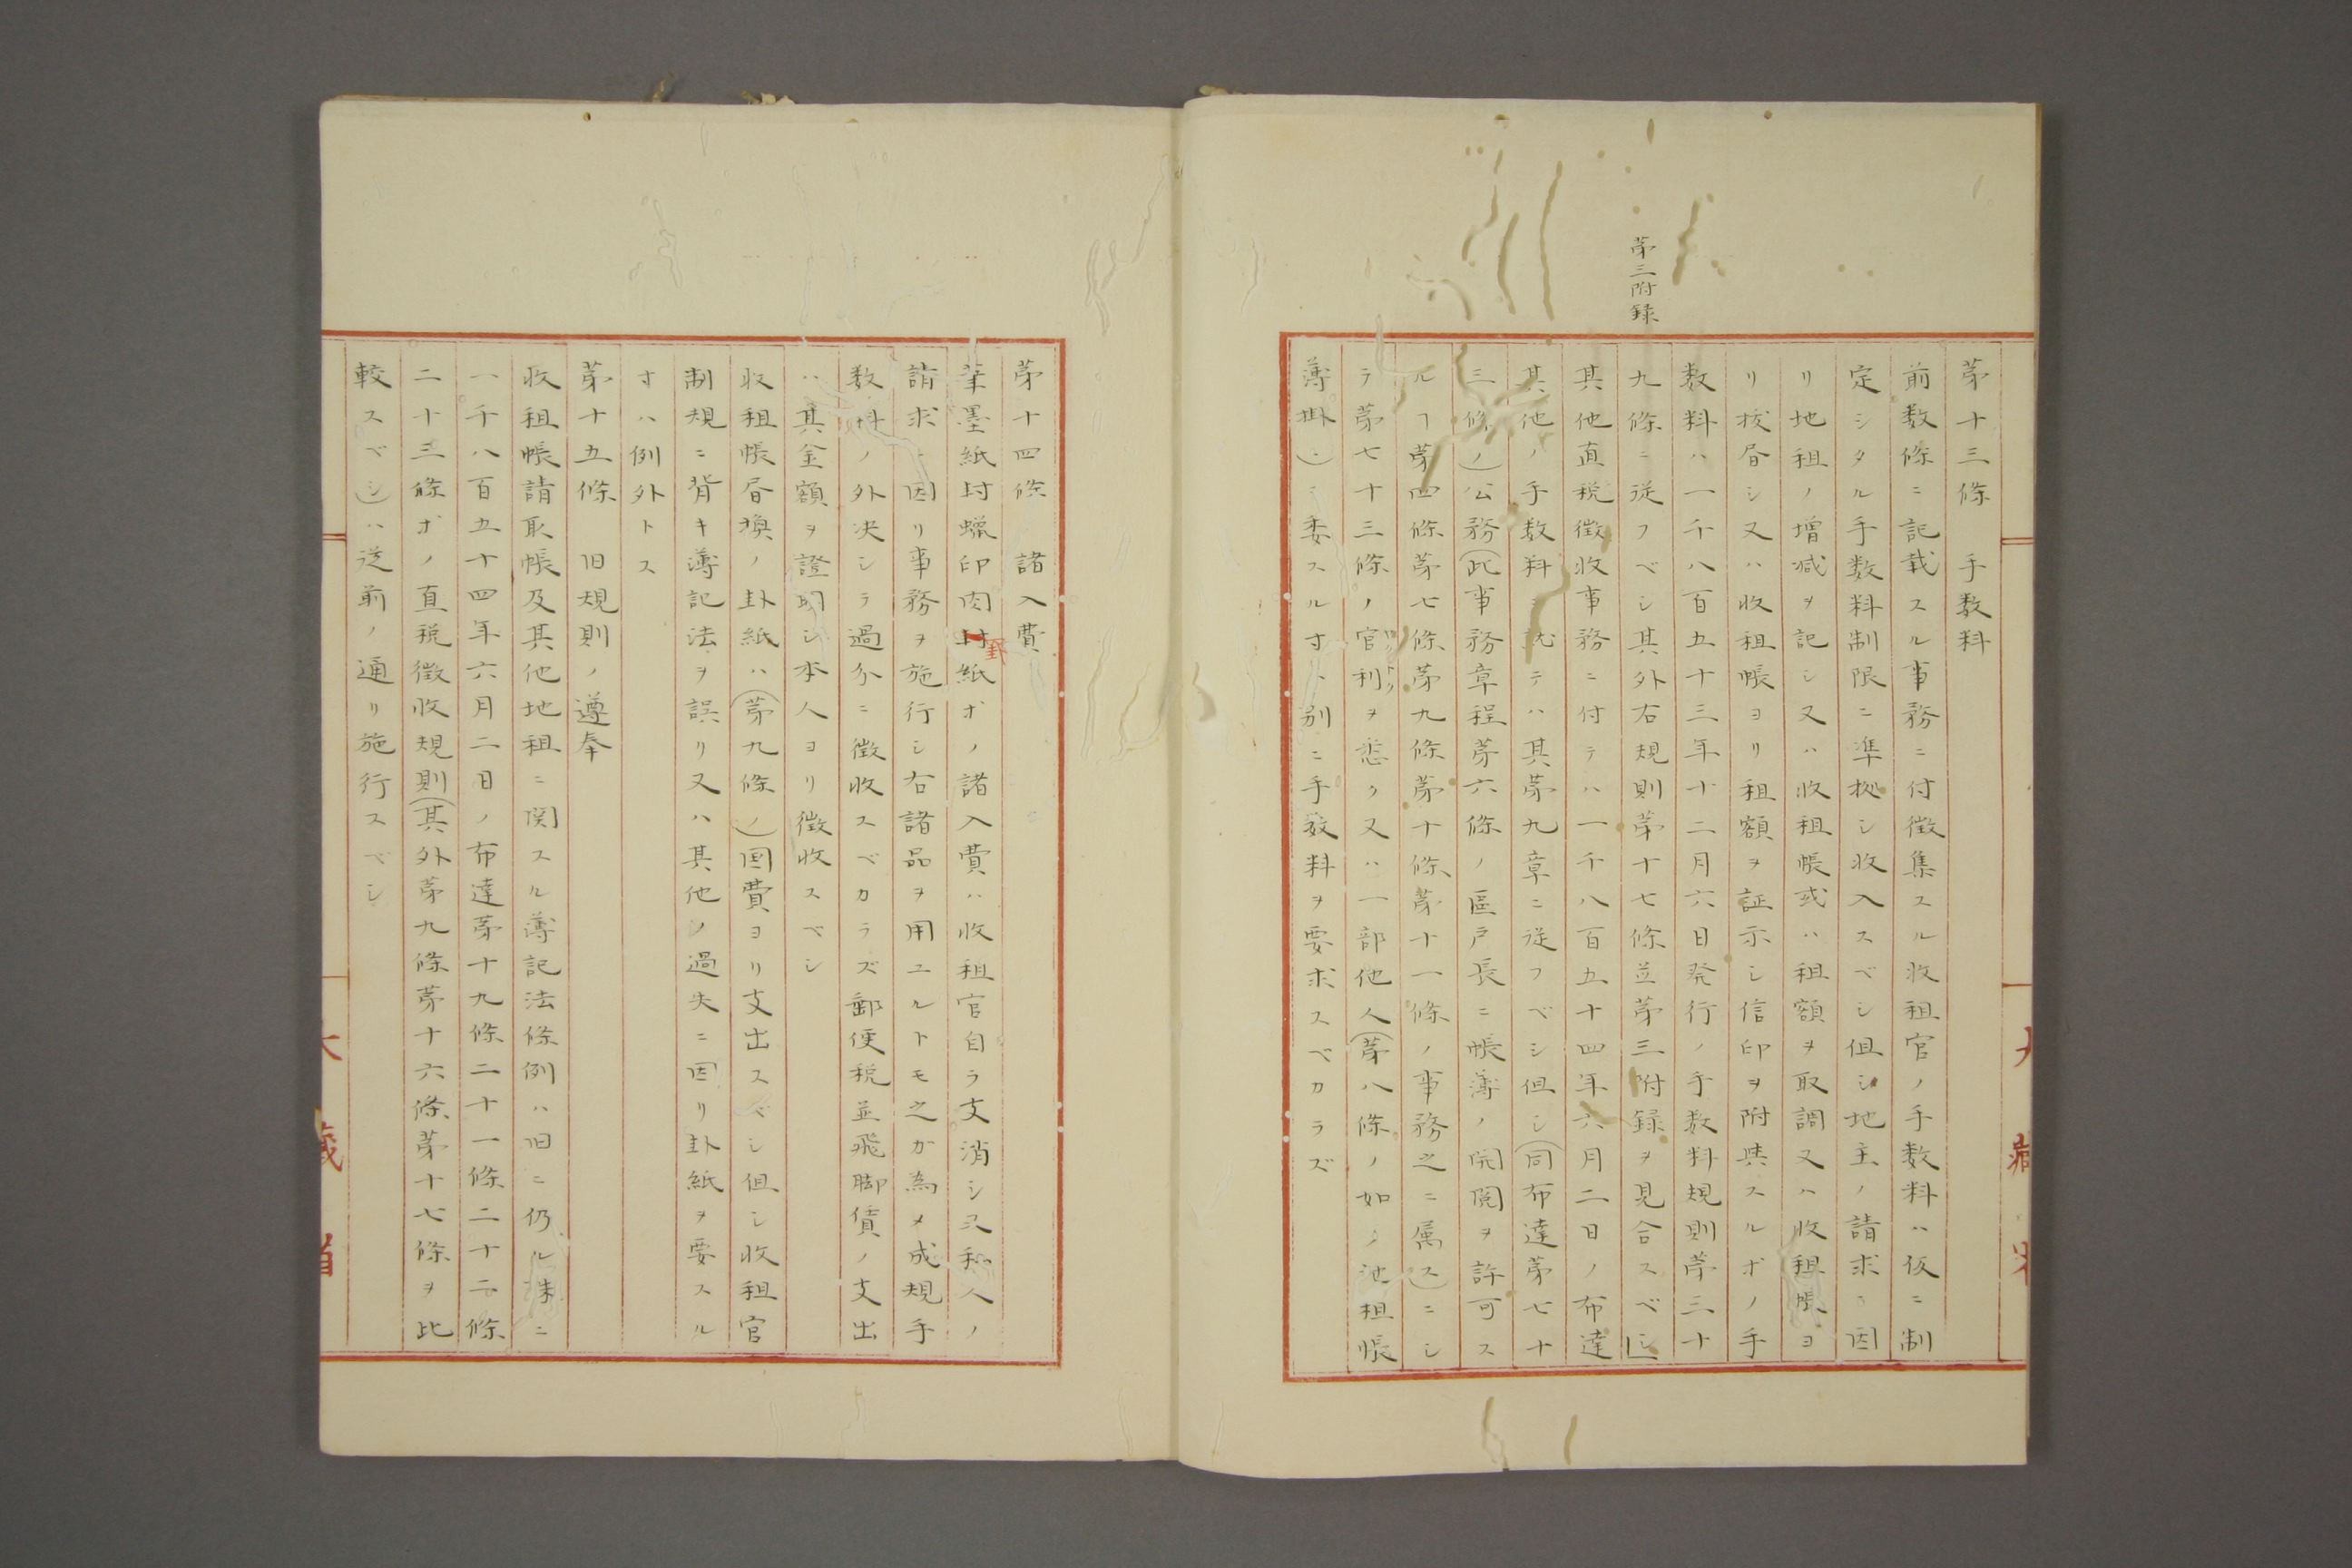 第三附録
第十三條　手数料
前数條ニ記載スル事務ニ付徴集スル收租官ノ手数料ハ仮ニ制
定シタル手数料制限ニ準拠シ收入スベシ但シ地主ノ請求ニ因
リ地租ノ増減ヲ記シ又ハ收租帳或ハ租額ヲ取調又ハ收租帳ヨ
リ抜昏シ又ハ收租帳ヨリ租額ヲ証示シ信印ヲ附與スルホノ手
数料ハ一千八百五十三年十二月六日発行ノ手数料規則第三十
九條ニ従フベシ其外右規則第十七條並第三附録ヲ見合スベシ
其他直税徴收事務ニ付テハ一千八百五十四年六月二日ノ布達
其他ノ手数料ニ就テハ其第九章ニ従フベシ但シ(同布達第七十
三條ノ)公務(此事務章程第六條ノ區戸長ニ帳簿ノ閲覧ヲ許可ス
ルヿ第四條第七條第九條第十條第十一條ノ事務之ニ属ス)ニシ
テ第七十三條ノ官利ヲ悉ク又ハ一部他人(第八條ノ如ク池租帳
簿掛)ニ委スル寸ハ別ニ手数料ヲ要求スベカラズ
第十四條　諸入費
筆墨紙封蠟印肉卦紙ホノ諸入費ハ收租官自ラ支消シ又私人ノ
請求ニ因リ事務ヲ施行シ右諸品ヲ用ユルトモ之ガ為メ成規手
数料ノ外决シテ過分ニ徴收スベカラズ郵便税並飛脚債ノ支出
ハ其金額ヲ證明シ本人ヨリ徴收スベシ
收租帳昏換ノ卦紙ハ(第九條ノ)国費ヨリ支出スベシ但シ收租官
制規ニ背キ簿記法ヲ誤リ又ハ其他ノ過失ニ因リ卦紙ヲ要スル
寸ハ例外トス
第十五條　旧規則ノ遵奉
收租帳請取帳及其他地租ニ関スル簿記法條例ハ旧ニ仍ル殊ニ
一千八百五十四年六月二日ノ布達第十九條二十一條二十二條
二十三條ホノ直税徴收規則(其外第九條第十六條第十七條ヲ比
較スベシ)ハ従前ノ通リ施行スベシ